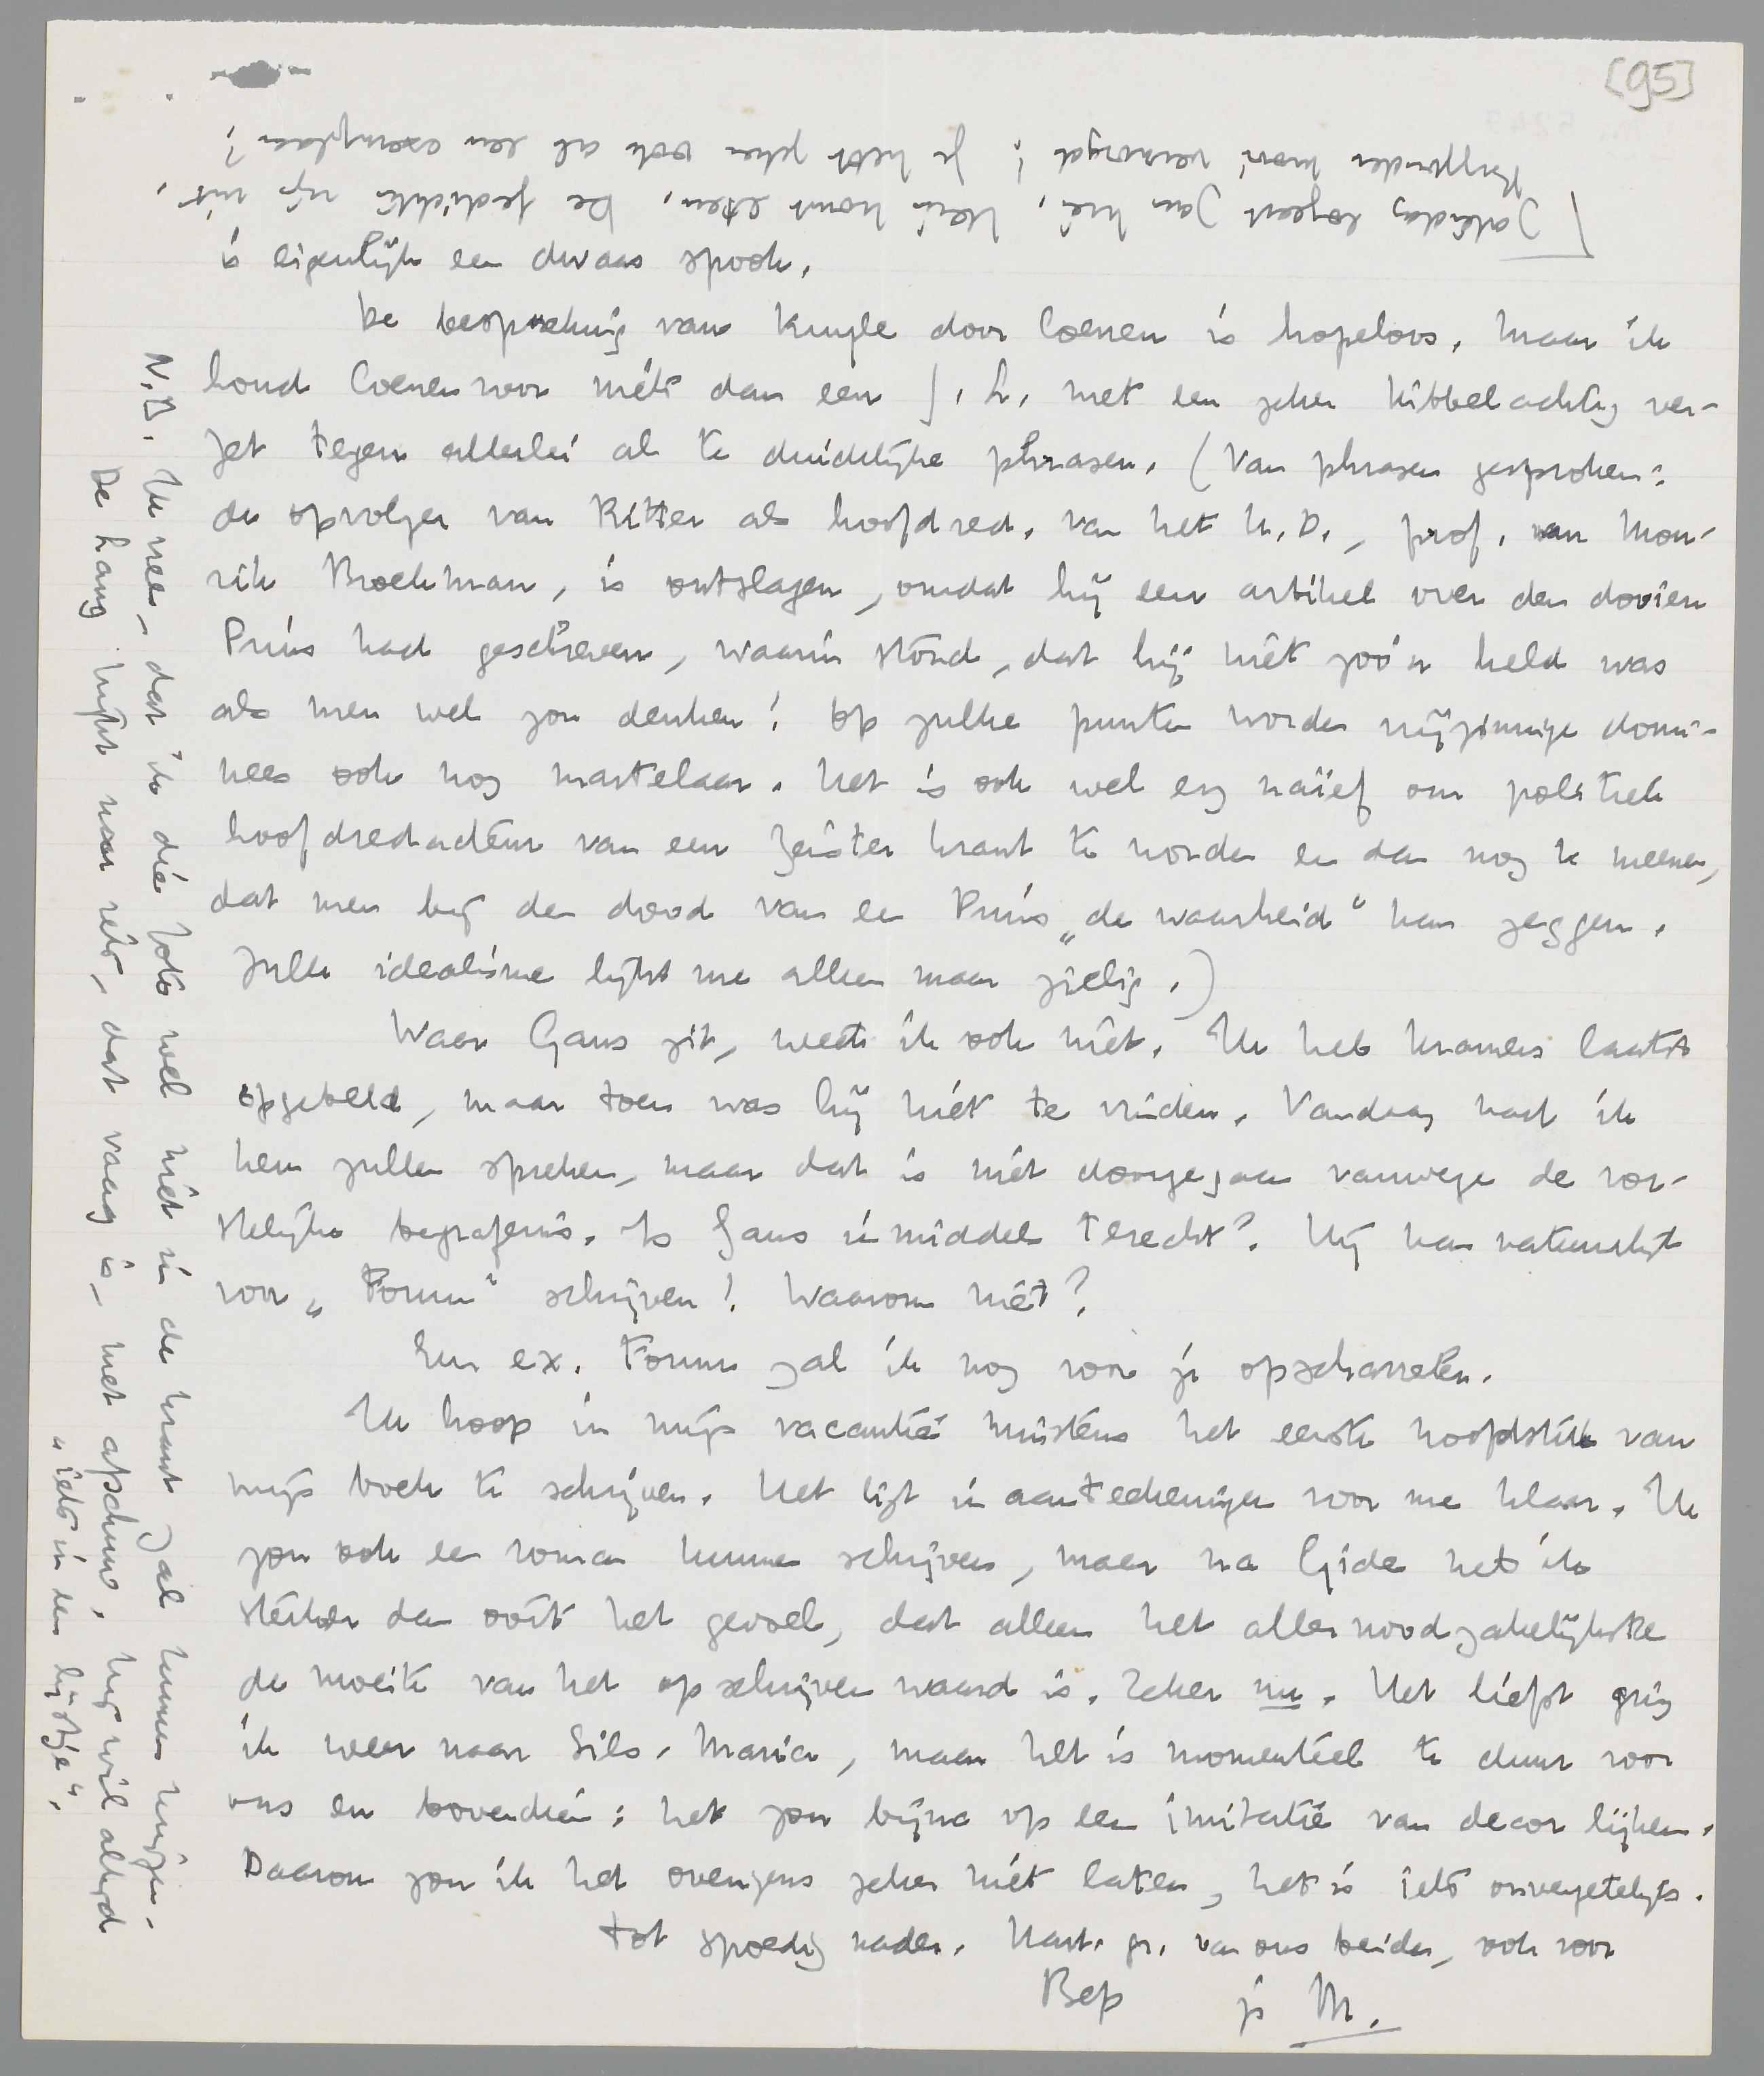 [95]
is eigenlijk een dwaas spook.
De bespreking van Kuyle door Coenen is hopeloos. Maar ik
houd Coenen voor niets dan een j. l. met een zeker kibbelachtig ver-
zet tegen allerlei al te duidelijke phrasen. (Van phrasen gesproken:
de opvolger van Ritter als hoofdred. van het U.D., prof. van Mou-
rik Broekman, is ontslagen, omdat hij een artikel over den dooien
Prins had geschreven, waarin stond, dat hij niet zoo'n held was
als men wel zou denken! Op zulke punten worden vrijzinnige domi-
nees ook nog martelaar. Het is ook wel erg naïef om politiek
hoofdredacteur van een Zeister krant te worden en dan nog te meenen,
dat men bij den dood van een Prins „de waarheid" kan zeggen.
Zulk idealisme lijkt me alleen maar zielig.)
Waar Gans zit, weet ik ook niet. Ik heb Kramers laatst
opgebeld, maar toen was hij niet te vinden. Vandaag had ik
hem zullen spreken, maar dat is niet doorgegaan vanwege de vor-
stelijke begrafenis. Is Gans inmiddels terecht? Hij kan natuurlijk
voor „Forum" schrijven! Waarom niet?
Een ex. Forum zal ik nog voor je opscharrelen.
Ik hoop in mijn vacantie minstens het eerste hoofdstuk van
mijn boek te schrijven. Het ligt in aanteekeningen voor me klaar. Ik
zou ook een roman kunnen schrijven, maar na Gide heb ik
sterker dan ooit het gevoel, dat alleen het allernoodzakelijkste
de moeite van het opschrijven waard is. Zeker nu. Het liefst ging
ik weer naar Sils-Maria, maar het is momenteel te duur voor
ons en bovendien: het zou bijna op een imitatie van decor lijken.
Daarom zou ik het overigens zeker niet laten, het is iets onvergetelijks.
Tot spoedig nader. Hart. gr. van ons beiden, ook voor
Bep je M.
N.B. Ik vrees, dat ik die foto wel niet in de krant zal kunnen krijgen.
De Lang hijgt naar iets, dat vaag is, met afschuw. Hij wil altijd
„iets in een lijstje".
Zaterdag logeert Jan hier, Hein komt eten. De gedichten zijn uit,
bijzonder mooi verzorgd! Je hebt zeker ook al een exemplaar?